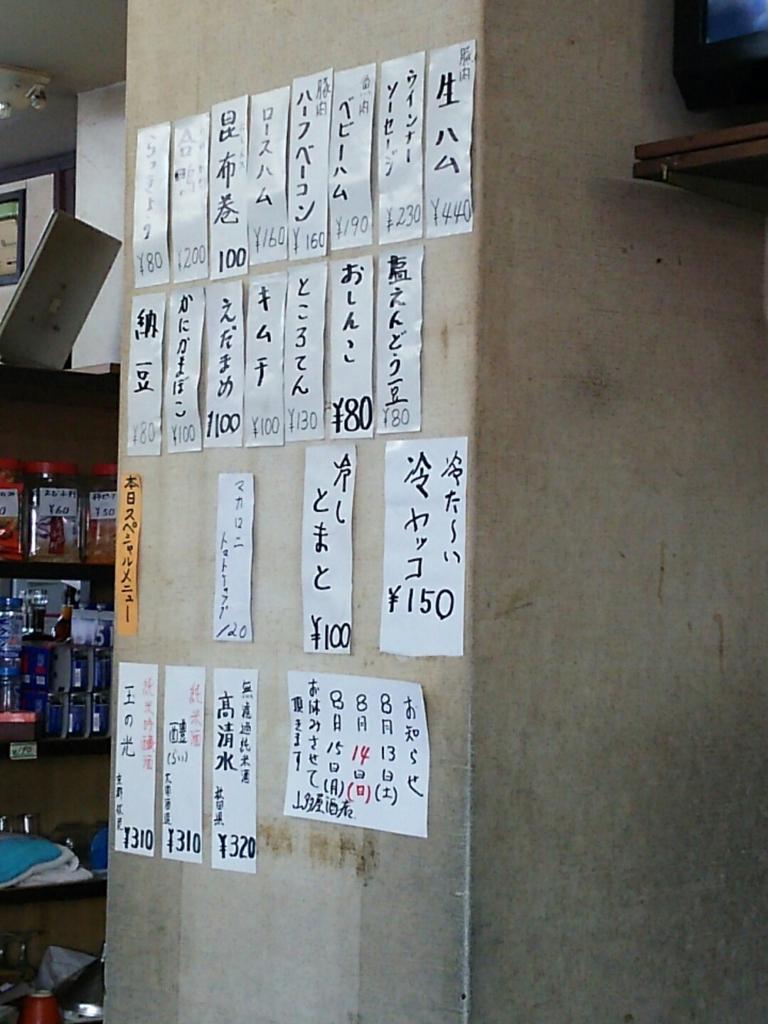 豚肉
生ハム
¥440
ウインナー
ソーセージ
¥230
魚肉
ベビーハム
¥190
豚肉
ハーフベーコン
¥160
ロースハム
¥160
昆布巻
100
合鴨
¥200
らっきょう
¥80
塩えんどう豆
¥80
おしんこ
¥80
ところてん
¥130
キムチ
¥100
えだまめ
¥100
かにかまぼこ
¥100
納豆
¥80
冷た〜い
冷ヤッコ
¥150
冷し
とまと
¥100
マカロニ
120
本日スペシャルメニュー
お知らせ
8月13日(土)
8月14日(日)
8月15日(月)
お休みさせて
頂きます
無濾過純米酒
高清水
秋田県
¥320
純米酒
¥310
純米吟醸酒
玉の光
¥310
¥60
¥50